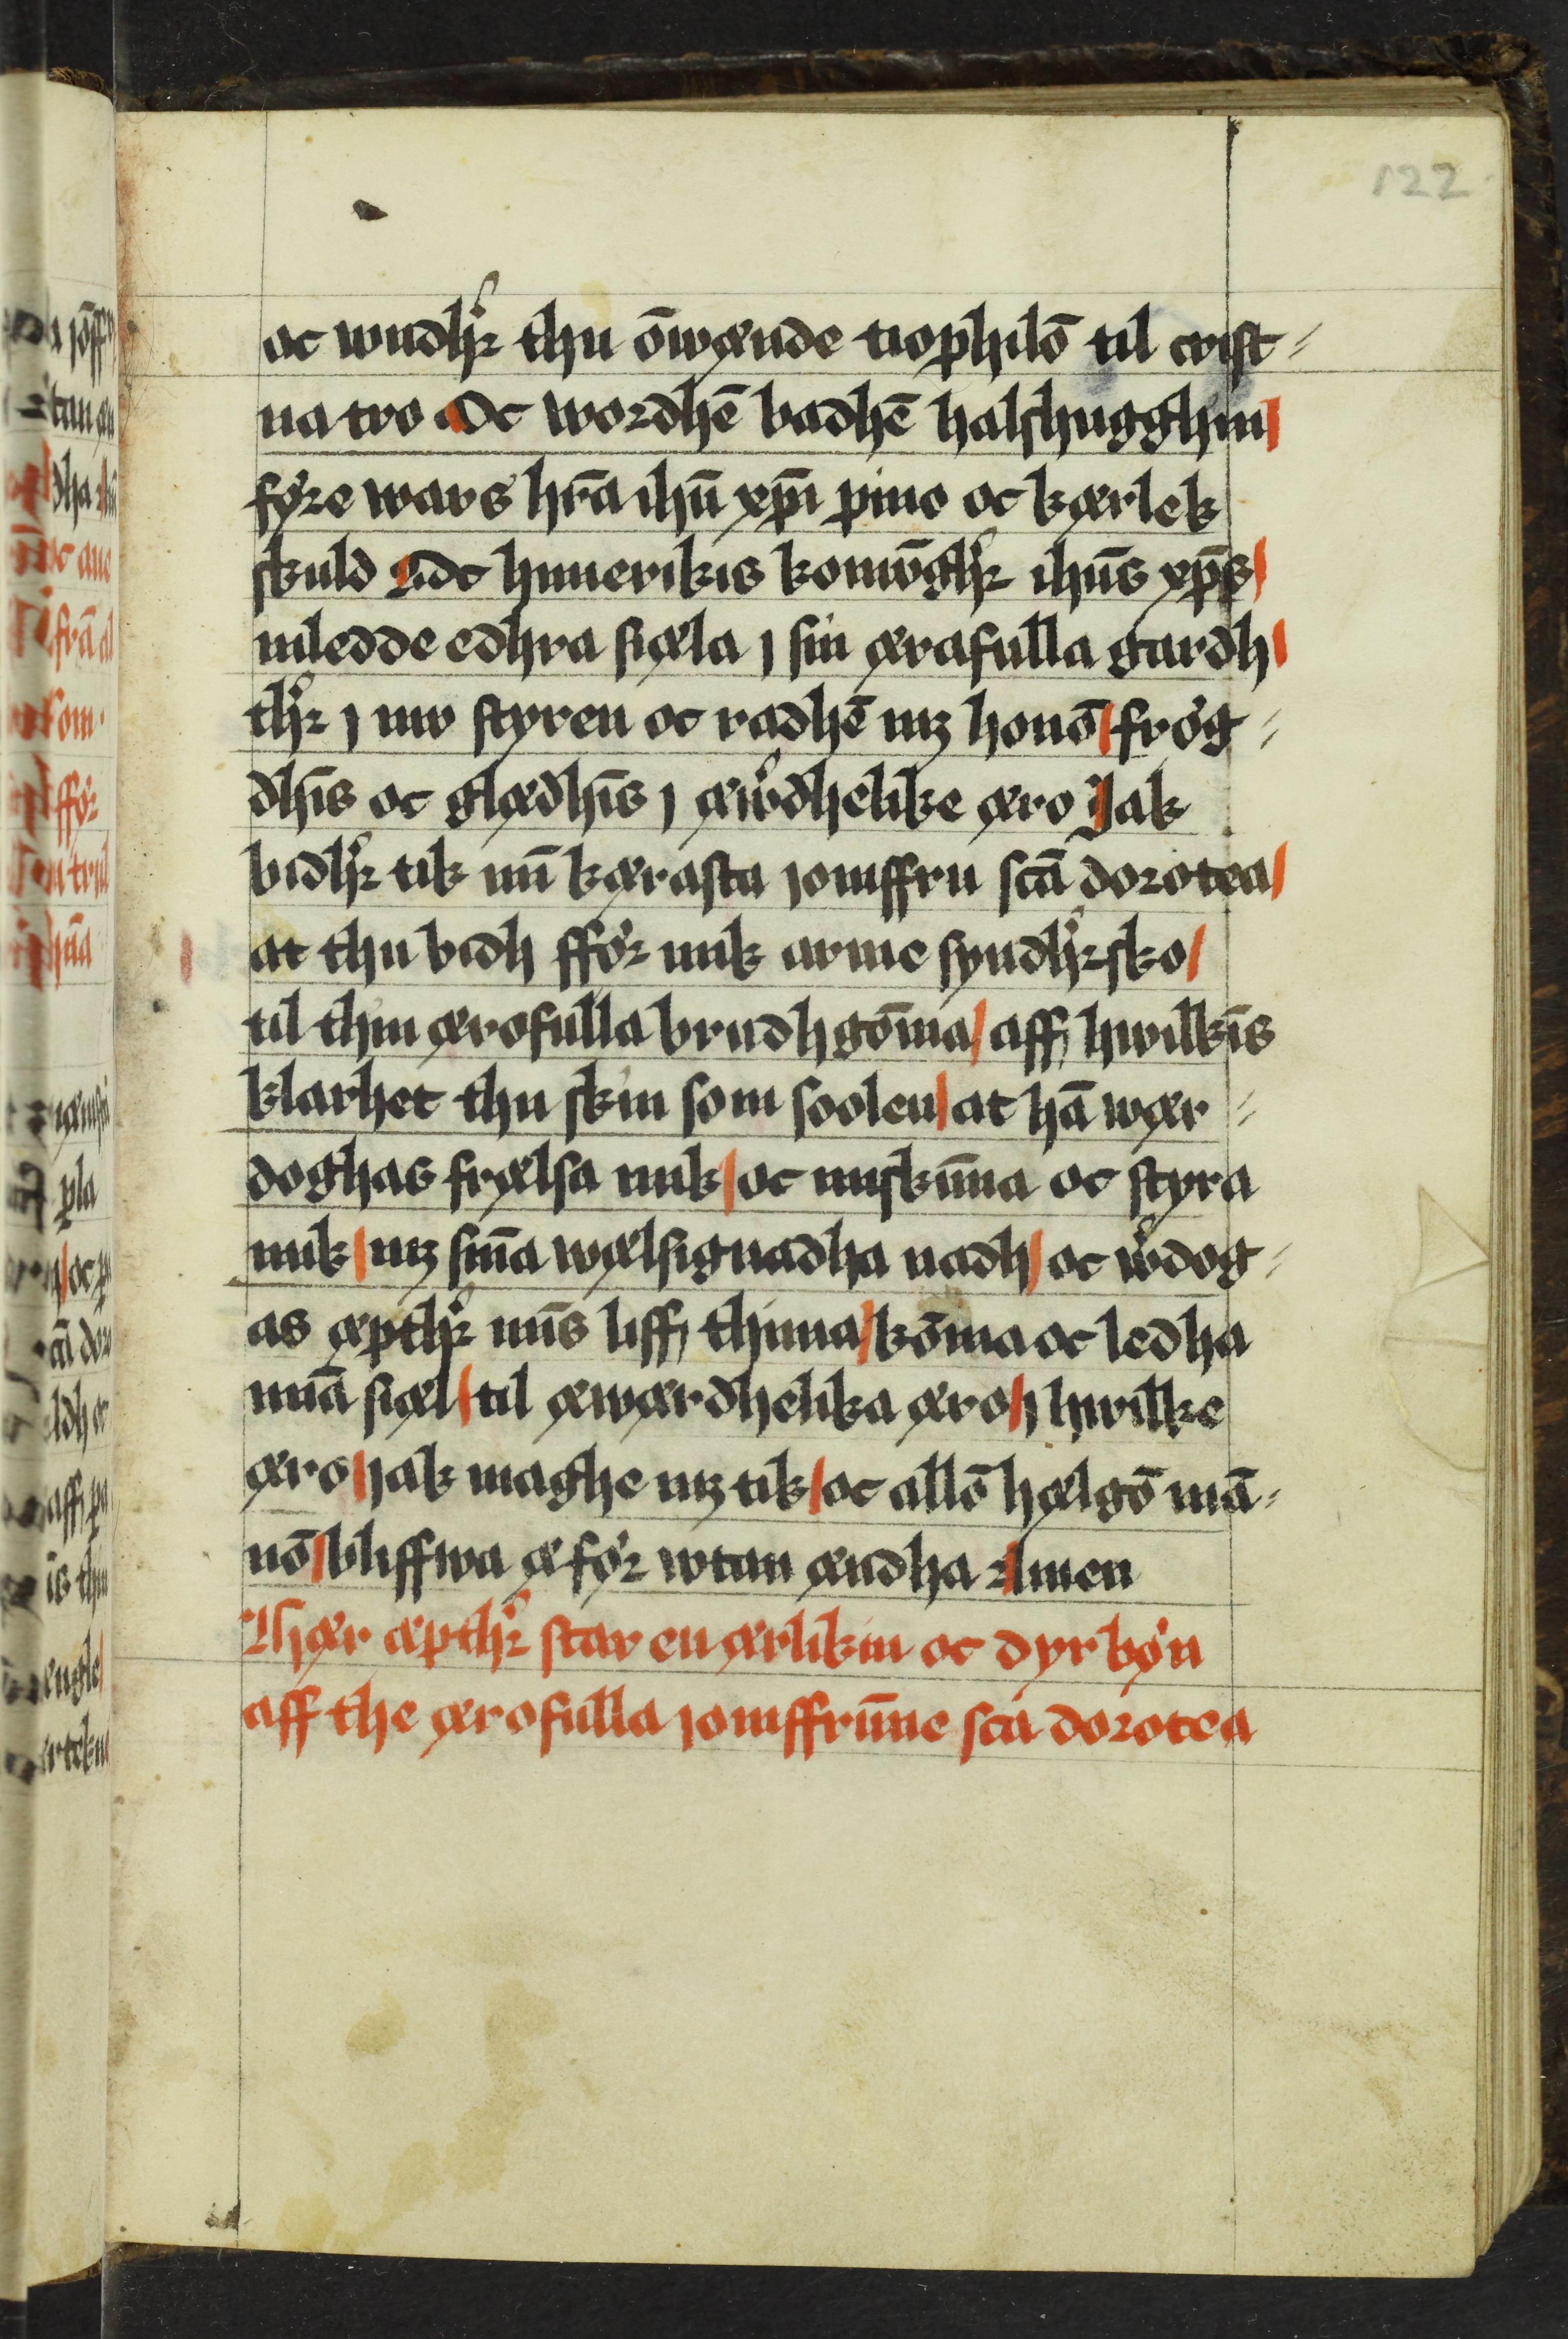 122
oc wndhꝛ thu ōwænde tiophilō til crist-
na tro Oc wordhē badhē halshugghin
føre wars hr̄a ihū xp̄i pino oc kærlek
skuld Oc himerikis konwnghꝛ ihūs xp̄s
inledde edhra siæla j sin ærafulla gardh
thꝛ j nw styren oc radhē mꝫ honō frøg-
dhīs oc glædhīs j æwꝛdhelike æro Jak
bidhꝛ tik mī kærasta jomffru scā dorotea
at thu bidh ffør mik arme syndhꝛsko
til thin ærofulla brudhgōma aff hwilkīs
klarhet thu skin som soolen at hā wær-
doghas frælsa mik oc miskūna oc styra
mik mꝫ sīna wælsignadha nadh oc wꝛdog-
as æpthꝛ mīs liff thima kōma oc ledha
mīā siæl til æwærdhelika æro j hwilke
æro jak maghe mꝫ tik oc allō hælgō mā-
nō bliffwa æ før wtan ændha Amen
Thær æpthꝛ star en ærlikin oc dyr bøn
aff the ærofulla jomffrūne scā dorotea